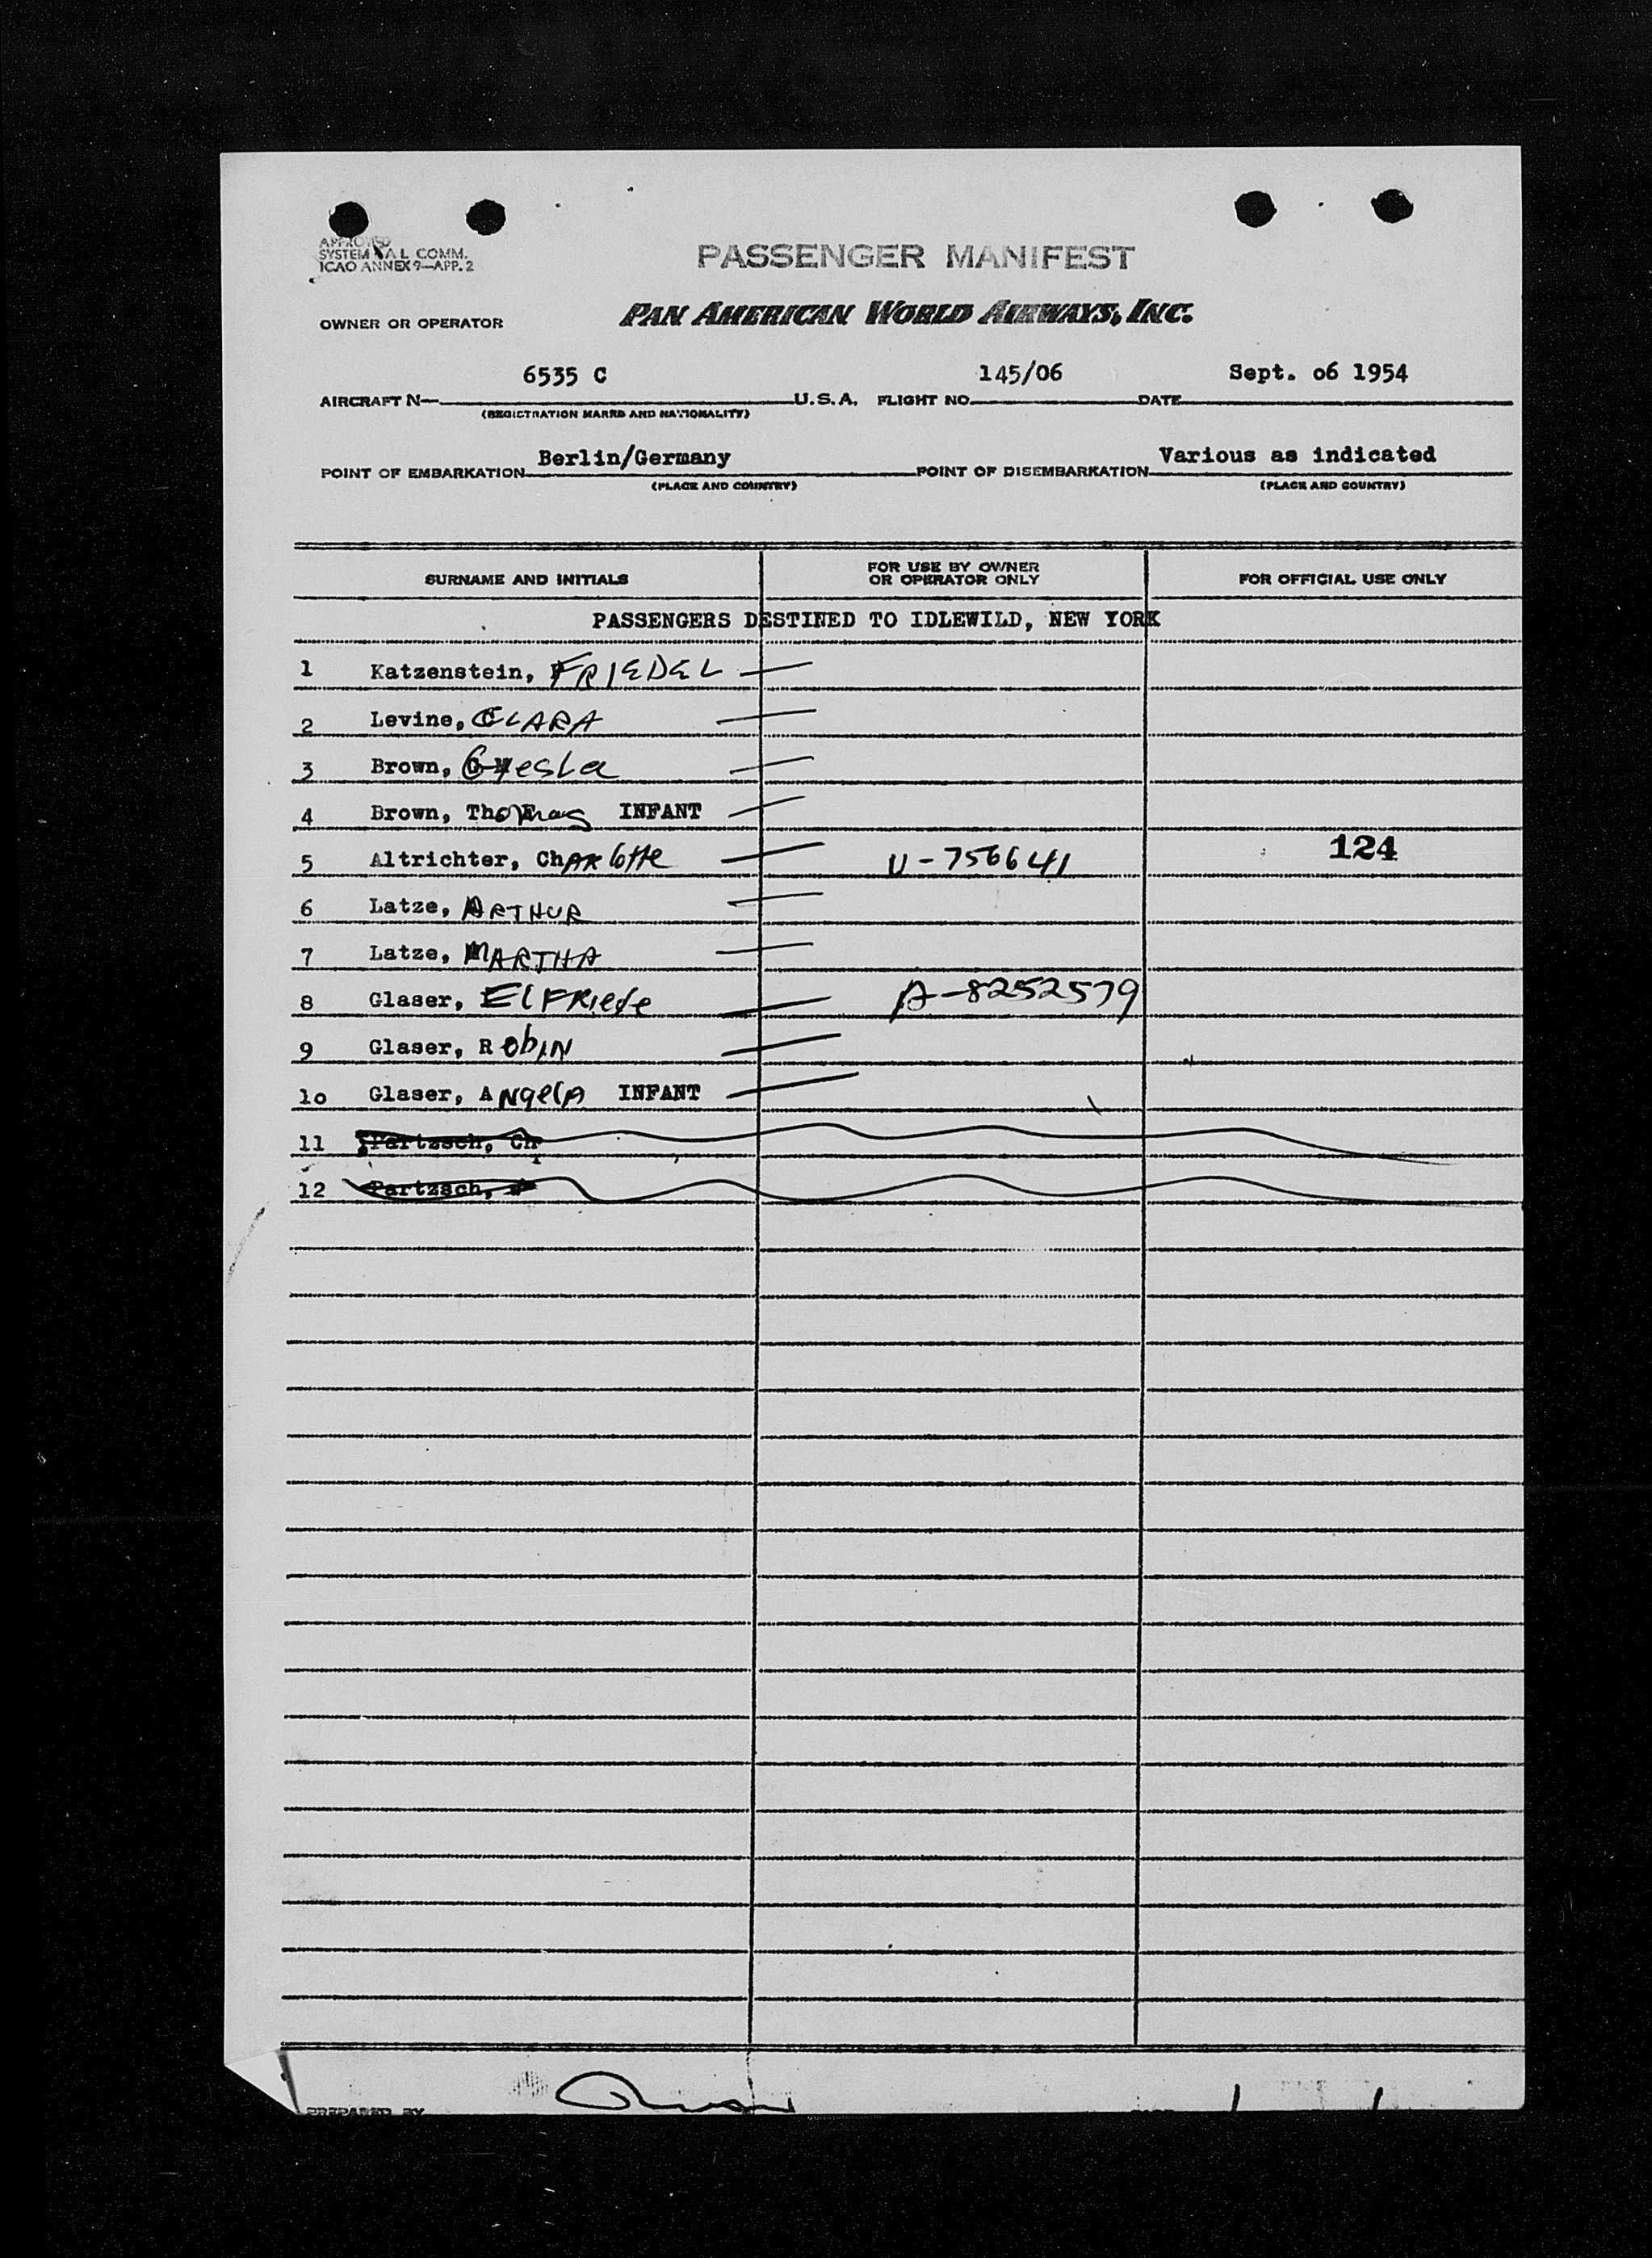 APPROVED
SYSTEM A L COMM.
ICAO ANNEX 9—APP. 2
PASSENGER MANIFEST
OWNER OR OPERATOR PAN AMERICAN WORLD AIRWAYS, INC.
AIRCRAFT N— 6535 C U.S.A. FLIGHT NO. 145/06 DATE Sept. o6 1954
(REGISTRATION MARKS AND NATIONALITY)
POINT OF EMBARKATION Berlin/Germany POINT OF DISEMBARKATION Various as indicated
(PLACE AND COUNTRY) (PLACE AND COUNTRY)
SURNAME AND INITIALS FOR USE BY OWNER OR OPERATOR ONLY FOR OFFICIAL USE ONLY
PASSENGERS DESTINED TO IDLEWILD, NEW YORK
1 Katzenstein, FRIEDEL
2 Levine, CLARA
3 Brown,
4 Brown, Thomas INFANT
5 Altrichter, ChARlotte U-756641 124
6 Latze, ARTHUR
7 Latze, MARTHA
8 Glaser, ElFRiede A-8252579
9 Glaser, RobiN
1o Glaser, ANgelA INFANT
11 Partzsch, Ch
12 Partzsch,
PREPARED BY